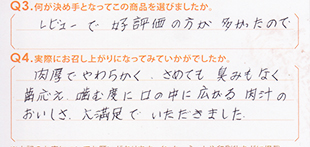 Q3.何が決め手となってこの商品を選びましたか。
レビューで好評価の方が多かったので
Q4.実際にお召し上がりになってみていかがでしたか。
肉厚でやわらかく、さめても臭みもなく
歯応え、噛む度に口の中に広がる肉汁が
おいしさ、大満足でいただきました。